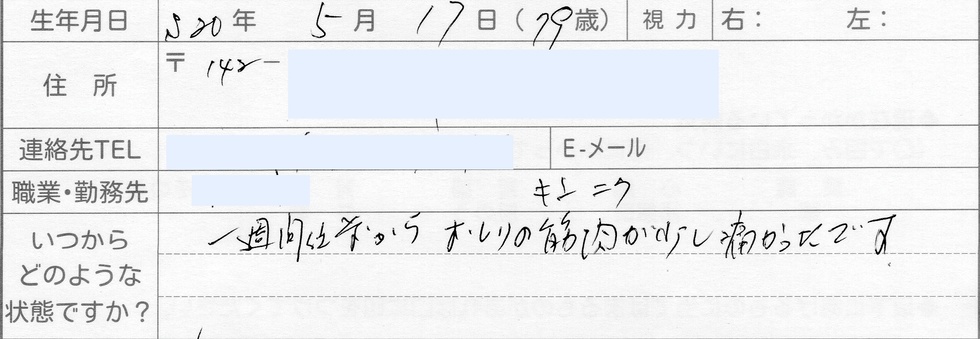 生年月日 S20年 5月 17日(79歳) 視力 右: 左:
住 所 〒142-
連絡先TEL E-メール
職業・勤務先 キンニク
いつから 一週間位前から おしりの筋肉が少し痛かったです
どのような
状態ですか?